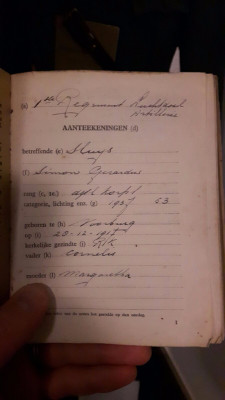 (a) 1ste Regiment Luchtdoel
Artillerie
AANTEEKENINGEN (d)
betreffende (e) Sluys
(f) Simon Gerardus
rang (z, aa.)
categorie, lichting enz. (g) 1937
geboren te (h) Voorburg
op (i) 23-12-1917
kerkelijke gezindte (j) RK
vader (k) Cornelis
moeder (l) Margaretha
1